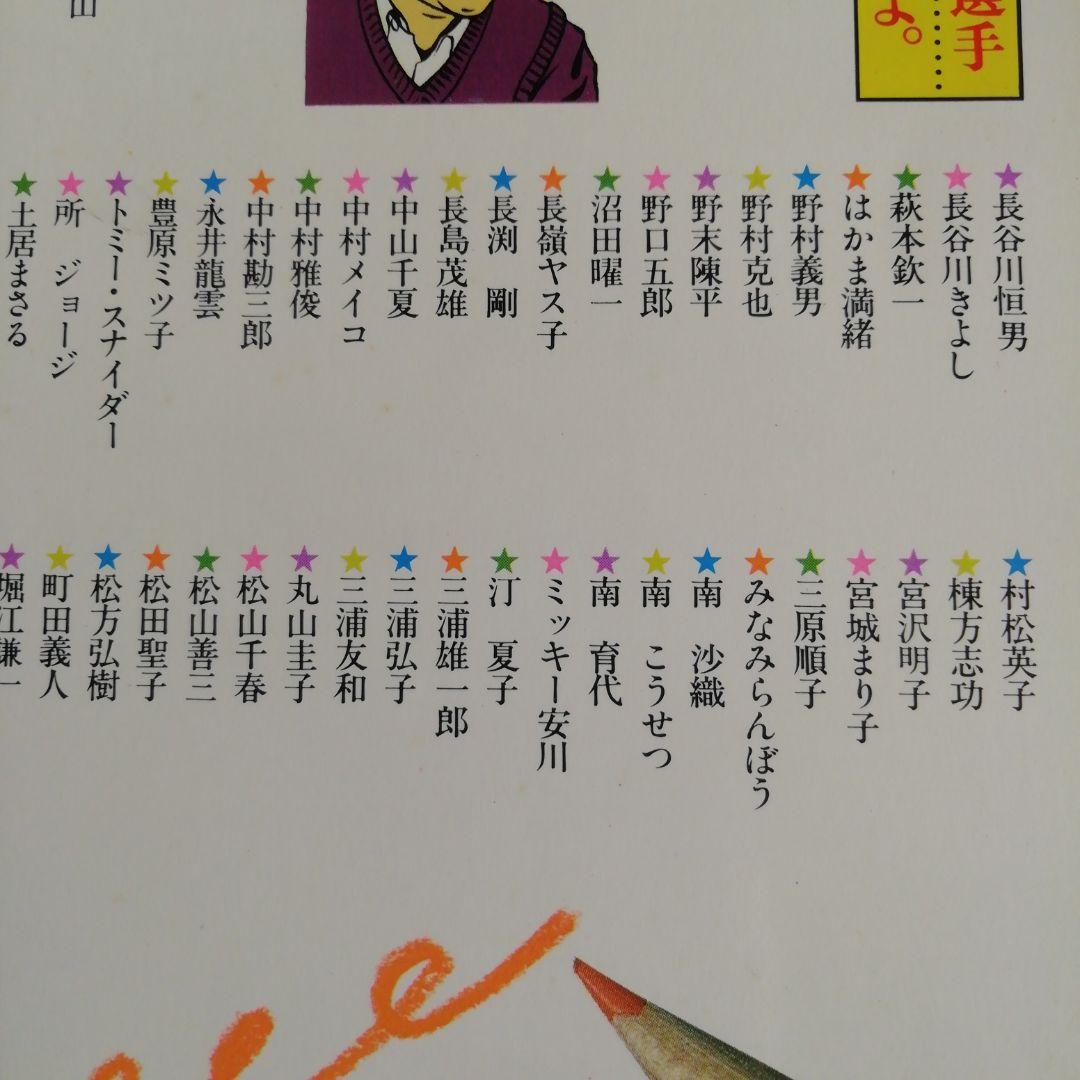 選手
よ。
山
長谷川恒男
長谷川きよし
萩本欽一
はかま満緒
野村義男
野村克也
野末陳平
野口五郎
沼田曜一
長嶺ヤス子
長渕　剛
長島茂雄
中山千夏
中村メイコ
中村雅俊
中村勘三郎
永井龍雲
豊原ミツ子
トミー・スナイダー
所　ジョージ
土居まさる
村松英子
棟方志功
宮沢明子
宮城まり子
三原順子
みなみらんぼう
南　沙織
南　こうせつ
南　育代
ミッキー安川
汀　夏子
三浦雄一郎
三浦弘子
三浦友和
丸山圭子
松山千春
松山善三
松田聖子
松方弘樹
町田義人
堀江謙一